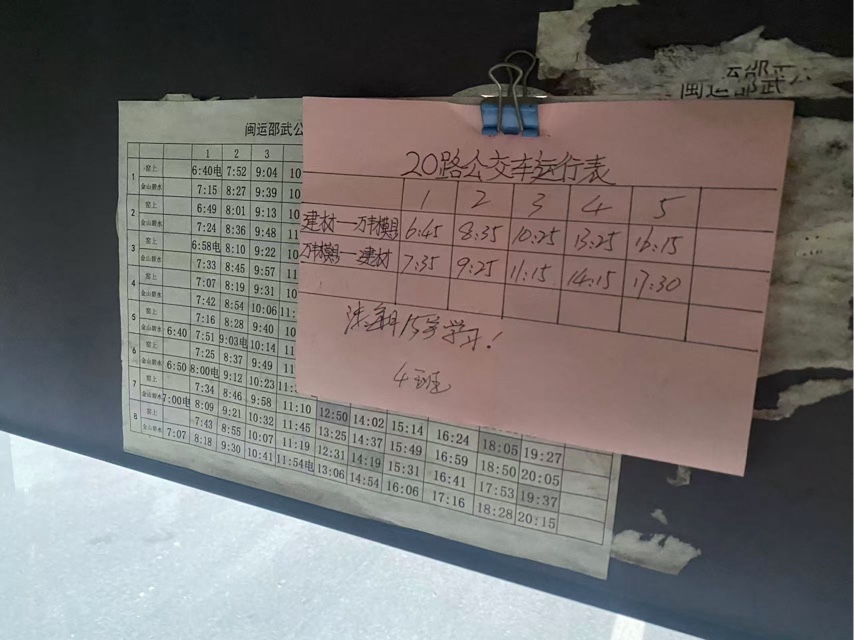 闽运邵武公
闽运邵武公
20路公交车运行表
1 2 3 4 5
建材——万韩模具 6:45 8:35 10:25 13:25 16:15
万韩模具——建材 7:35 9:25 11:15 14:15 17:30
15号学习!
4班
1 2 3
1 窑上 6:40电 7:52 9:04 10
金山碧水 7:15 8:27 9:39 10
2 窑上 6:49 8:01 9:13 10
金山碧水 7:24 8:36 9:48 11
3 窑上 6:58电 8:10 9:22
金山碧水 7:33 8:45 9:57 11
4 窑上 7:07 8:19 9:31 10
金山碧水 7:42 8:54 10:06 11
5 窑上 7:16 8:28 9:40 10
金山碧水 6:40 7:51 9:03电 10:14 11
6 窑上 7:25 8:37 9:49 11
金山碧水 6:50 8:00电 9:12 10:23 11:
7 窑上 7:34 8:46 9:58 11:10 12:50 14:02 15:14 16:24 18:05 19:27
金山碧水 7:00电 8:09 9:21 10:32 11:45 13:25 14:37 15:49 16:59 18:50 20:05
8 窑上 7:43 8:55 10:07 11:19 12:31 14:19 15:31 16:41 17:53 19:37
金山碧水 7:07 8:18 9:30 10:41 11:54电 13:06 14:54 16:06 17:16 18:28 20:15